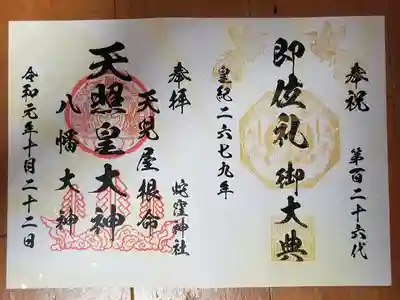 奉祝
第百二十六代
即位礼御大典
皇紀二六七九年
奉拝
蛇窪神社
天児屋根命
天照皇大神
八幡大神
令和元年十月二十二日